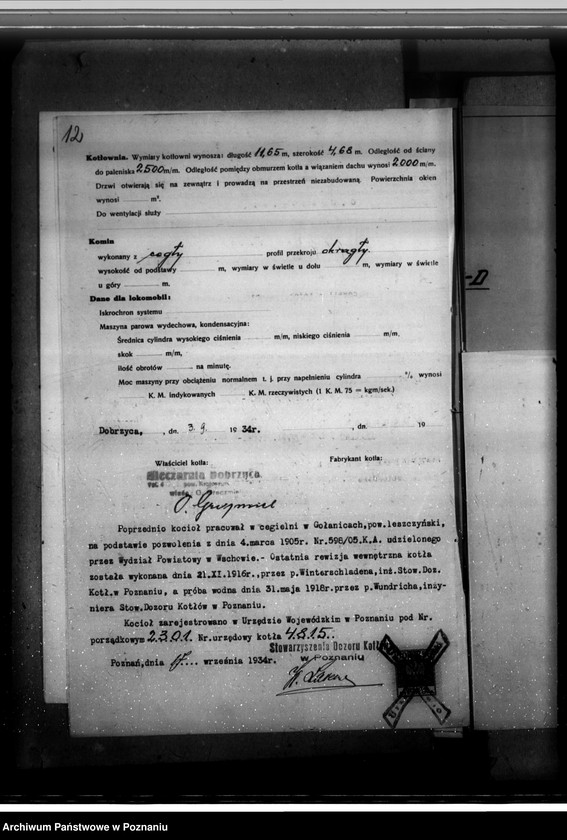 12
Kotłownia. Wymiary kotłowni wynoszą: długość 11,65 m, szerokość 4,68 m. Odległość od ściany
do paleniska 2500 m/m. Odległość pomiędzy obmurzem kotła a wiązaniem dachu wynosi 2000 m/m.
Drzwi otwierają się na zewnątrz i prowadzą na przestrzeń niezabudowaną. Powierzchnia okien
wynosi m².
Do wentylacji służy
Komin
wykonany z cegły profil przekroju okrągły.
wysokość od podstawy m, wymiary w świetle u dołu m, wymiary w świetle
u góry m.
Dane dla lokomobil:
Iskrochron systemu
Maszyna parowa wydechowa, kondensacyjna:
Średnica cylindra wysokiego ciśnienia m/m, niskiego ciśnienia m/m,
skok m/m,
ilość obrotów na minutę.
Moc maszyny przy obciążeniu normalnem t. j. przy napełnieniu cylindra %, wynosi
K. M. indykowanych K. M. rzeczywistych (1 K. M. 75 = kgm/sek.)
Dobrzyca, , dn. 3.9. 1934r. , dn. 19
Właściciel kotła: Fabrykant kotła:
Mleczarnia Dobrzyca
Poprzednio kocioł pracował w cegielni w Gołanicach,pow.leszczyński,
na podstawie pozwolenia z dnia 4.marca 1905r. Nr.598/05.K.A. udzielonego
przez Wydział Powiatowy w Wschowie.- Ostatnia rewizja wewnętrzna kotła
została wykonana dnia 21.XI.1916r.,przez p.Winterschladena,inż.Stow.Doz.
Kotł.w Poznaniu, a próba wodna dnia 31.maja 1918r.przez p.Wundricha,inży-
niera Stow.Dozoru Kotłów w Poznaniu.
Kocioł zarejestrowano w Urzędzie Wojewódzkim w Poznaniu pod Nr.
porządkowym 2301. Nr.urzędowy kotła 4815.
Stowarzyszenie Dozoru Kotłów
w Poznaniu
Poznań,dnia 17... września 1934r.
-D
Archiwum Państwowe w Poznaniu